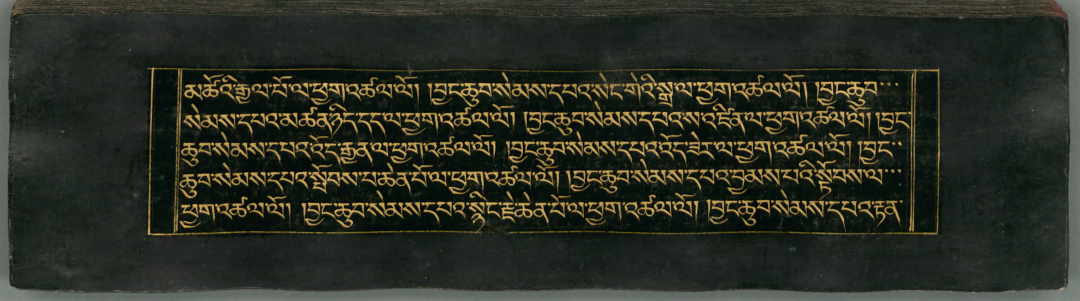 མཚོའི་རྒྱལ་པོ་ལ་ཕྱག་འཚལ་ལོ། །བྱང་ཆུབ་སེམས་དཔའ་སེང་གེའི་སྒྲ་ལ་ཕྱག་འཚལ་ལོ། །བྱང་ཆུབ་
སེམས་དཔའ་མཚན་ཉིད་དད་ལ་ཕྱག་འཚལ་ལོ། །བྱང་ཆུབ་སེམས་དཔའ་ས་འཛིན་ལ་ཕྱག་འཚལ་ལོ། །བྱང་
ཆུབ་སེམས་དཔའ་འོད་རྒྱན་ལ་ཕྱག་འཚལ་ལོ། །བྱང་ཆུབ་སེམས་དཔའ་འོད་ཟེར་ལ་ཕྱག་འཚལ་ལོ། །བྱང་
ཆུབ་སེམས་དཔའ་སྤོབས་པ་ཆེན་པོ་ལ་ཕྱག་འཚལ་ལོ། །བྱང་ཆུབ་སེམས་དཔའ་བྱམས་པའི་སྟོབས་ལ་
ཕྱག་འཚལ་ལོ། །བྱང་ཆུབ་སེམས་དཔའ་སྙིང་རྗེ་ཆེན་པོ་ལ་ཕྱག་འཚལ་ལོ། །བྱང་ཆུབ་སེམས་དཔའ་རྟན་